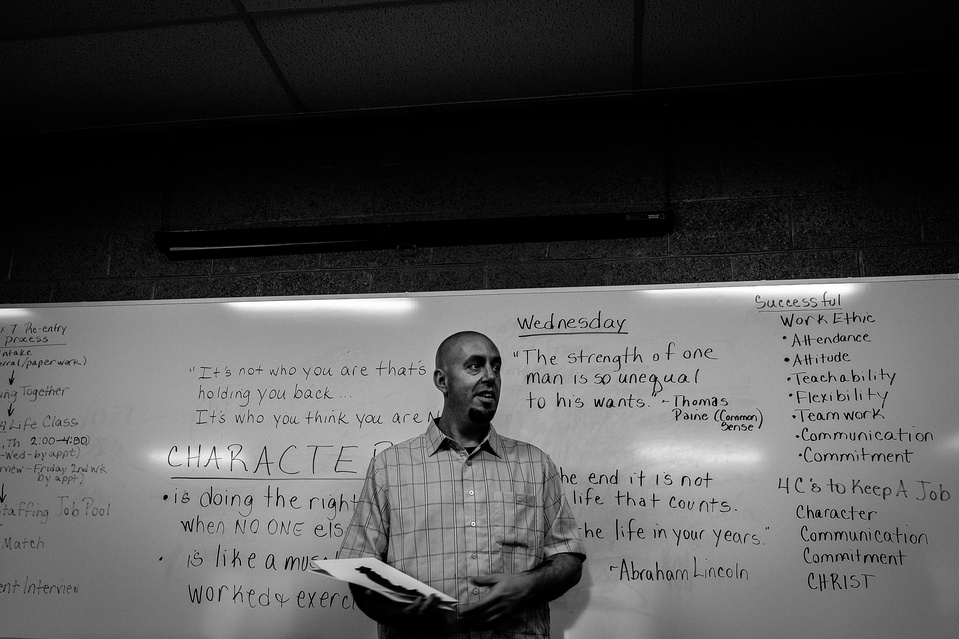 7 Pre-entry
Process
ntake
erral/paperwork)
ng Together
Life Class
Th 2:00-4:30)
-Wed-by appt)
rview-Friday 2nd wk
by appt)
taffing Job Pool
Match
ent Interview
"It's not who you are that's
holding you back...
It's who you think you are N
CHARACTE
• is doing the right
when NO ONE els
• is like a mus
worked & exerc
Wednesday
"The strength of one
man is so unequal
to his wants." ~Thomas
Paine (Common
Sense)
he end it is not
life that counts.
he life in your years."
~Abraham Lincoln
Successful
Work Ethic
• Attendance
• Attitude
• Teachability
• Flexibility
• Teamwork
• Communication
• Commitment
4 C's to Keep A Job
Character
Communication
Commitment
CHRIST